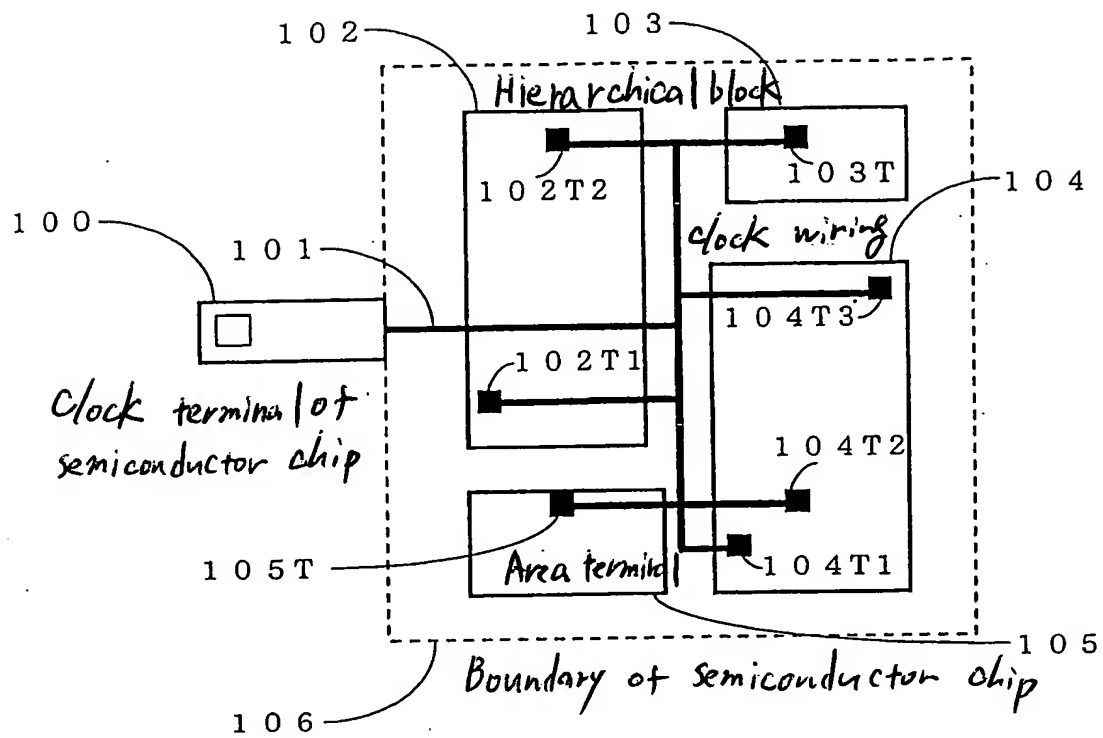 102
103
Hierarchical block
102T2
103T
104
100
101
clock wiring
104T3
102T1
Clock terminal of
semiconductor chip
104T2
105T
Area terminal
104T1
105
Boundary of semiconductor chip
106